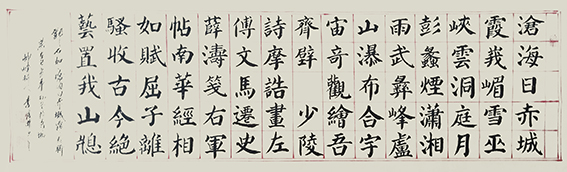 滄海日赤城
霞我嵋雪巫
峽雲洞庭月
彭蠡煙瀟湘
雨武彝峰盧
山瀑布合宇
宙奇觀繪吾
齊壁 少陵
詩摩詰畫左
傳文馬遷史
薛濤箋右軍
帖南華經相
如賦屈子離
騷收古今絕
藝置我山牕